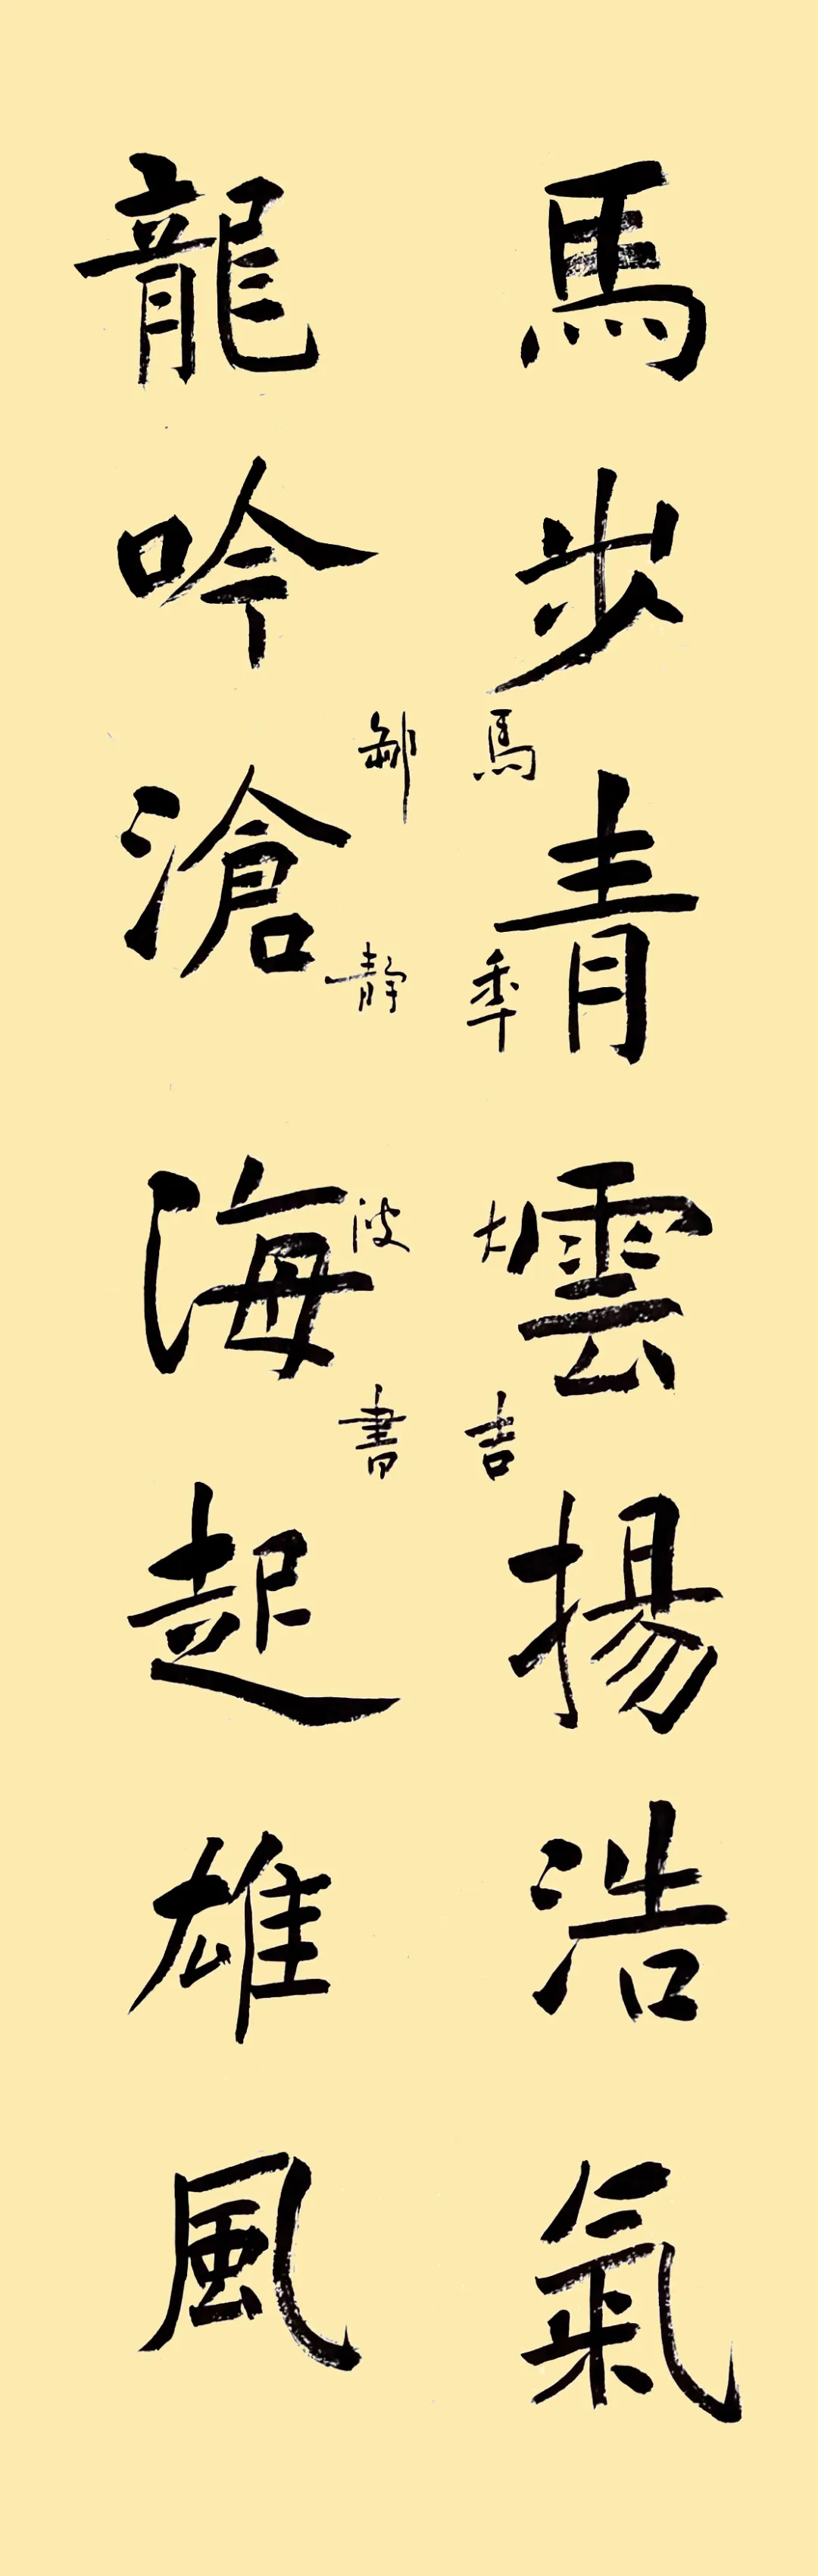 馬步青雲揚浩氣
馬年大吉
靜波書
龍吟滄海起雄風